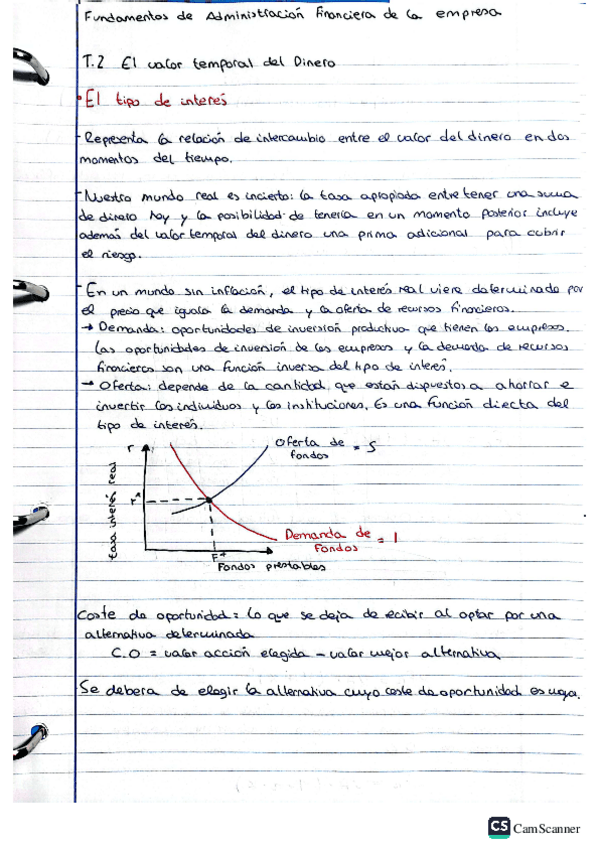 Fundamentos de Administración financiera de la empresa
T.2 El valor temporal del Dinero
• El tipo de interés
- Representa la relación de intercambio entre el valor del dinero en dos
momentos del tiempo.
- Nuestro mundo real es incierto: la tasa apropiada entre tener una suma
de dinero hoy y la posibilidad de tenerla en un momento posterior incluye
además del valor temporal del dinero una prima adicional para cubrir
el riesgo.
- En un mundo sin inflación, el tipo de interés real viene determinado por
el precio que iguala la demanda y la oferta de recursos financieros.
→ Demanda: oportunidades de inversión productiva que tienen las empresas.
Las oportunidades de inversión de las empresas y la demanda de recursos
financieros son una función inversa del tipo de interés.
→ Oferta: depende de la cantidad que están dispuestos a ahorrar e
invertir los individuos y las instituciones. Es una función directa del
tipo de interés.
r
Oferta de fondos = S
tasa interés real
r*
Demanda de fondos = I
F*
Fondos prestables
Coste de oportunidad = lo que se deja de recibir al optar por una
alternativa determinada
C.O = valor acción elegida - valor mejor alternativa
Se debera de elegir la alternativa cuyo coste de oportunidad es
CS CamScanner